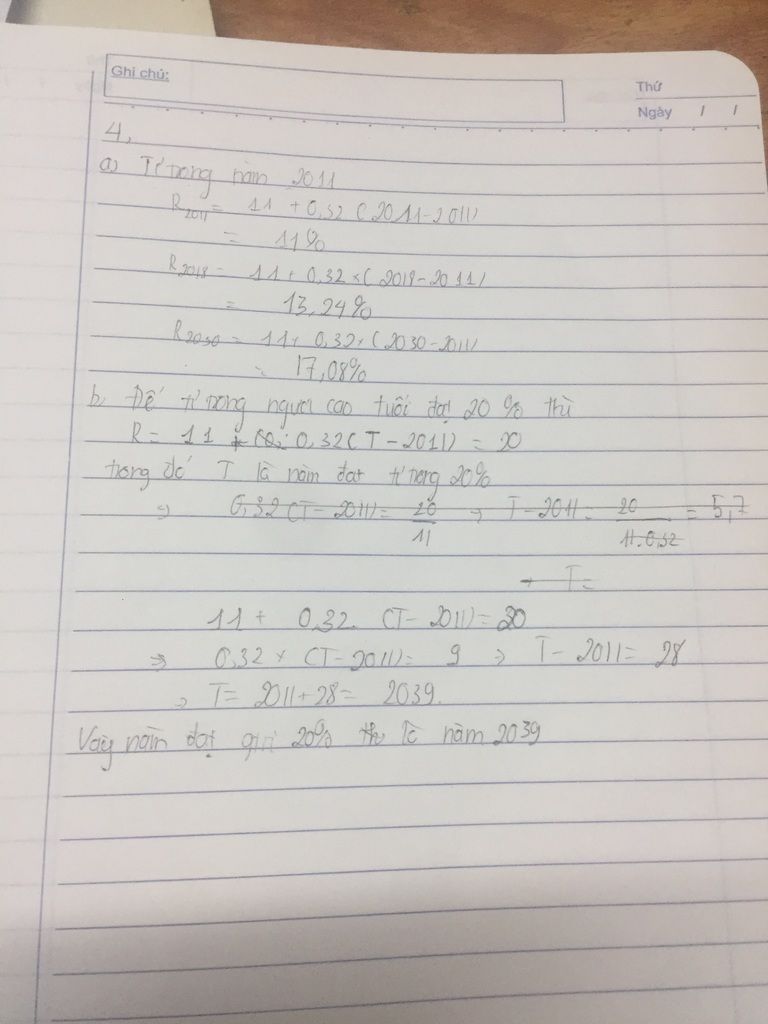 Ghi chú:
Thứ
Ngày / /
4,
a) Tỉ trọng năm 2011
R2011 = 11 + 0,32 (2011-2011)
= 11%
R2018 = 11 + 0,32 × (2018-2011)
= 13,24%
R2030 = 11+ 0,32 × (2030-2011)
= 17,08%
b, Để tỉ trọng người cao tuổi đạt 20% thì
R = 11 + 0,32 (T-2011) = 20
trong đó T là năm đạt tỉ trọng 20%
=> 0,32 (T-2011) = 20/11 => T-2011 = 20/11.0,32 = 5,7
→ T=
11 + 0,32. (T-2011) = 20
=> 0,32 × (T-2011) = 9 => T-2011 = 28
=> T= 2011+28= 2039.
Vậy năm đạt 20% là năm 2039